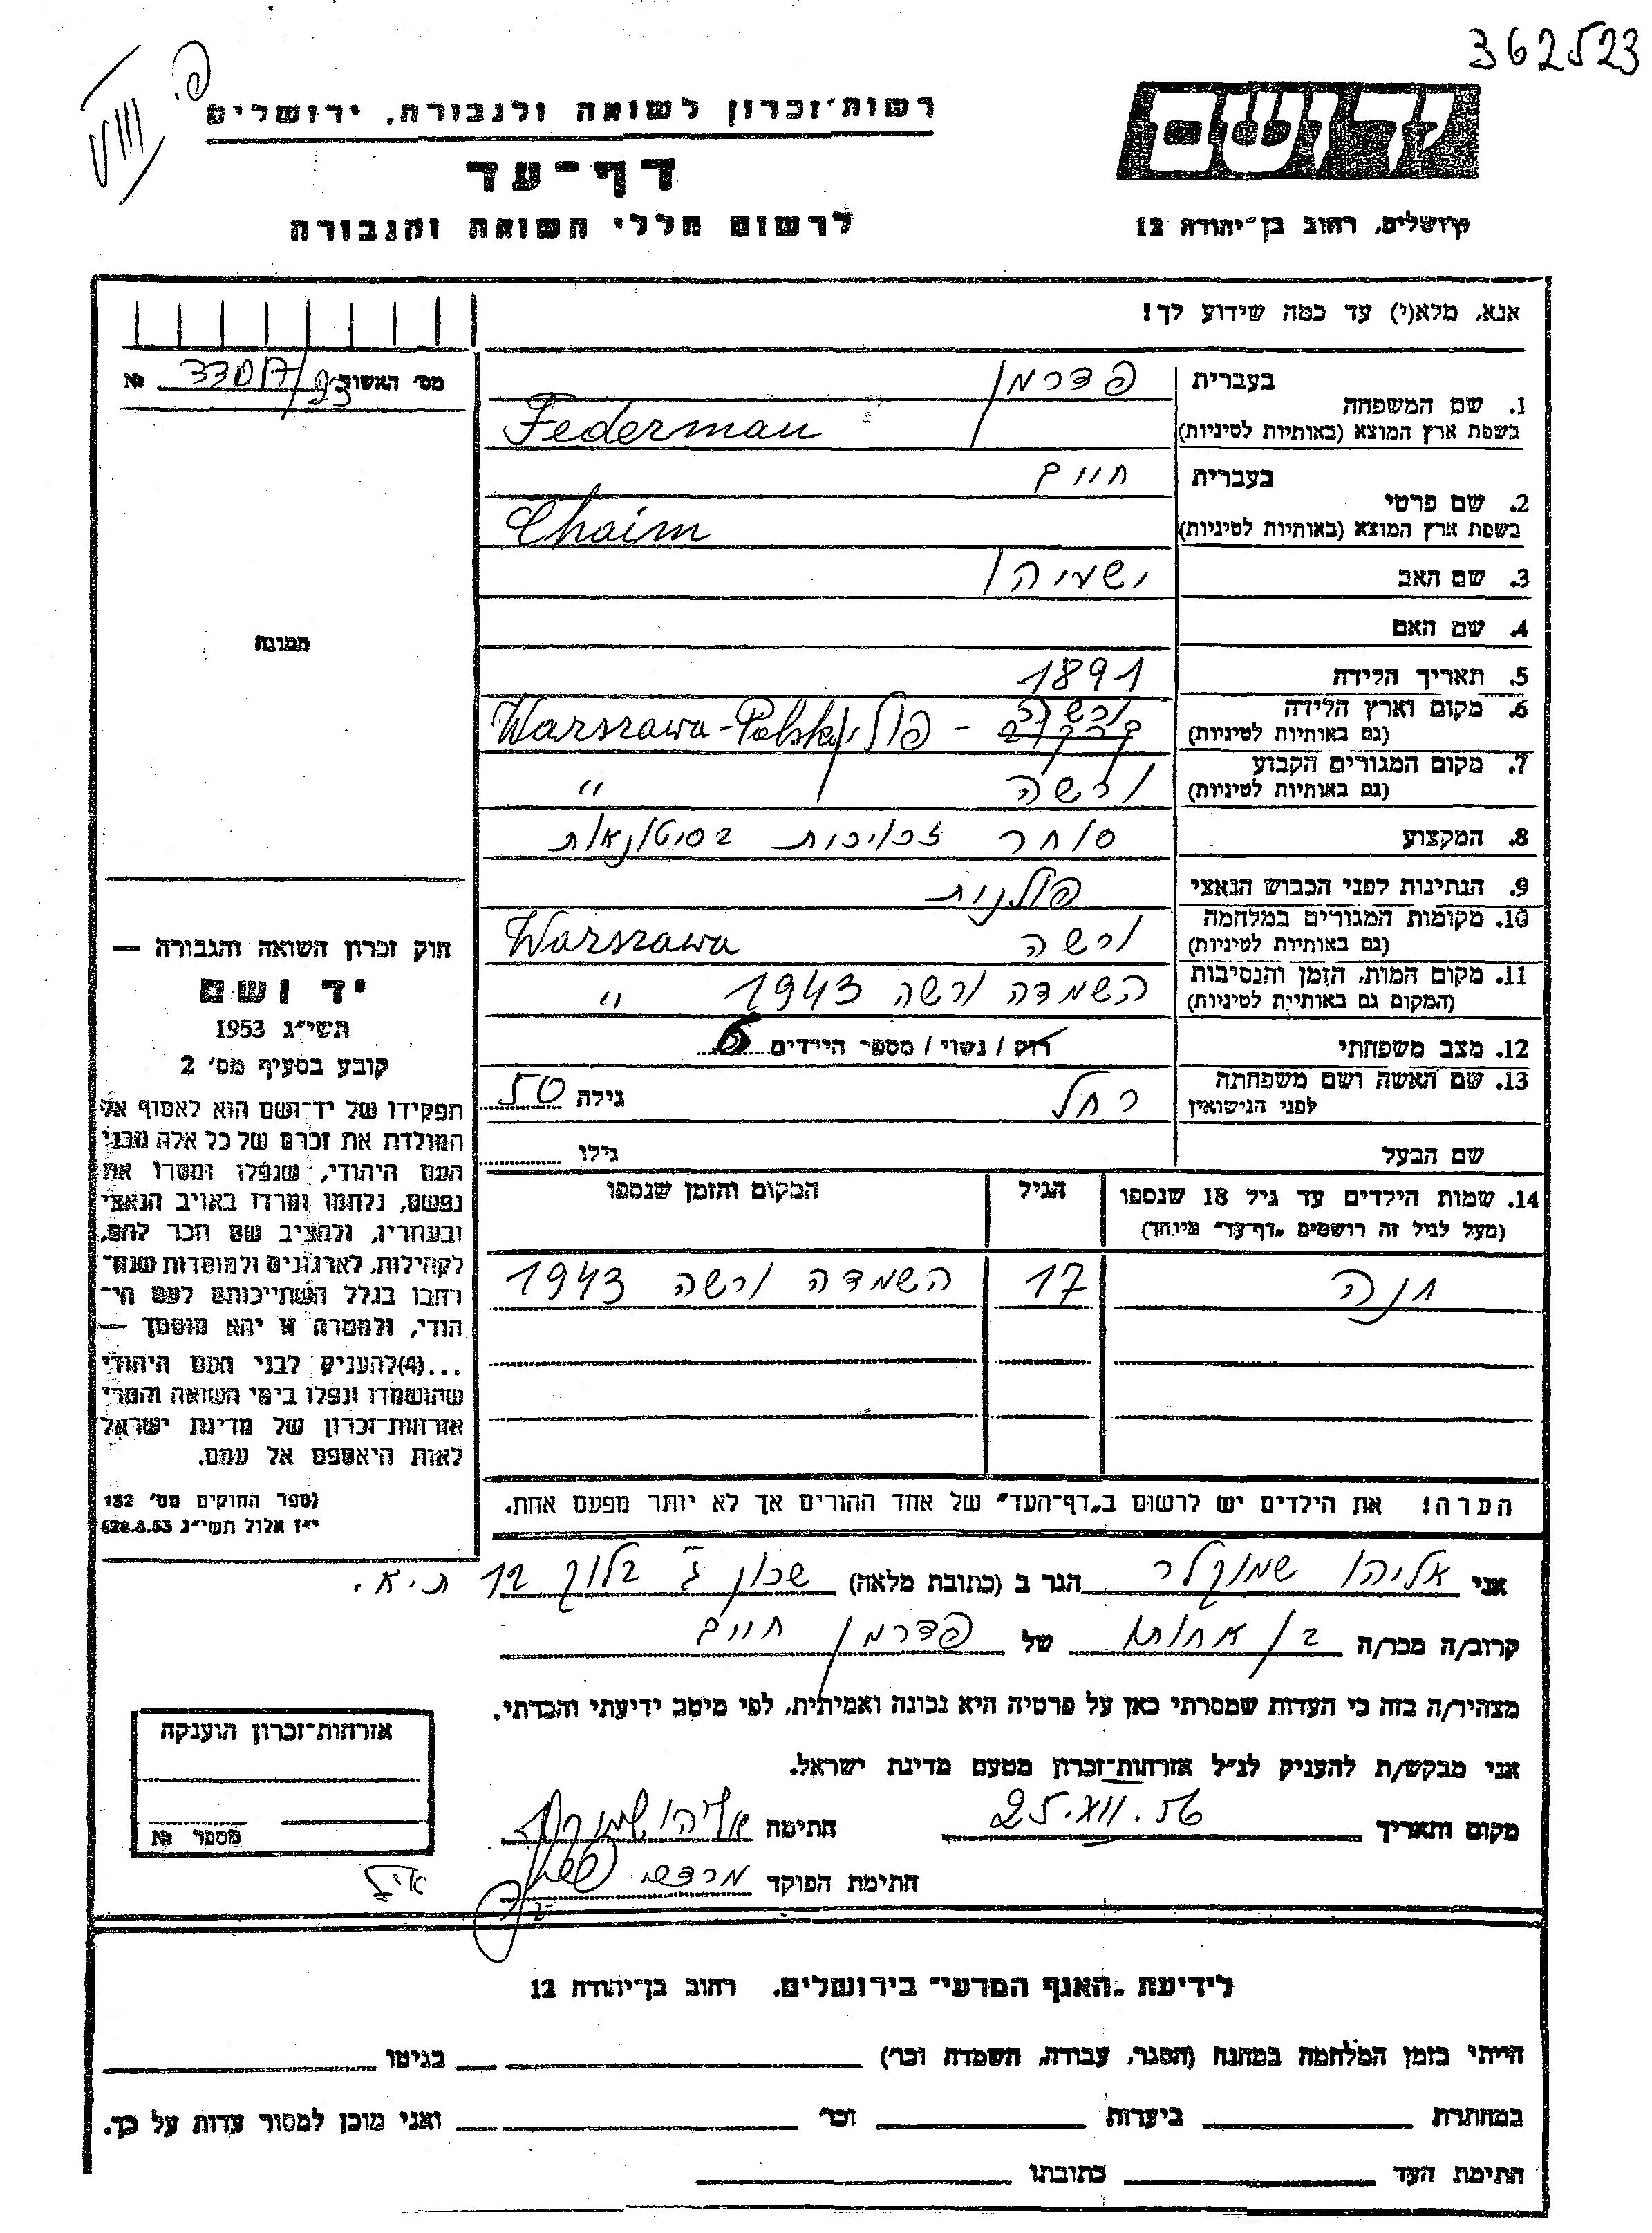 362523
פ. VIII
רשות־זכרון לשואה ולגבורה, ירושלים
יד ושם
דף־עד
לרשום חללי השואה והגבורה
ירושלים, רחוב בן־יהודה 12
אנא, מלא(י) עד כמה שידוע לך!
מס' האשור 33017/93 №
בעברית פדרמן
1. שם המשפחה
בשפת ארץ המוצא (באותיות לטיניות) Federman
בעברית חיים
2. שם פרטי
בשפת ארץ המוצא (באותיות לטיניות) Chaim
3. שם האב ישעיהו
4. שם האם
תמונה
5. תאריך הלידה 1891
6. מקום וארץ הלידה ורשה - פולין Warszawa-Polska
(גם באותיות לטיניות)
7. מקום המגורים הקבוע ורשה "
(גם באותיות לטיניות)
8. המקצוע סוחר זכוכית בסיטונאות
9. הנתינות לפני הכבוש הנאצי פולנית
10. מקומות המגורים במלחמה ורשה Warszawa
(גם באותיות לטיניות)
11. מקום המות, הזמן והנסיבות השמדה ורשה 1943 "
(המקום גם באותיות לטיניות)
12. מצב משפחתי רווק / נשוי / מספר הילדים 6
13. שם האשה ושם משפחתה רחל גילה 50
לפני הנישואין
שם הבעל גילו
14. שמות הילדים עד גיל 18 שנספו הגיל המקום והזמן שנספו
(מעל לגיל זה רושמים "דף־עד" מיוחד)
חנה 17 השמדה ורשה 1943
הערה! את הילדים יש לרשום ב"דף־העד" של אחד ההורים אך לא יותר מפעם אחת.
חוק זכרון השואה והגבורה —
יד ושם
תשי"ג 1953
קובע בסעיף מס' 2
תפקידו של יד־ושם הוא לאסוף אל
המולדת את זכרם של כל אלה מבני
העם היהודי, שנפלו ומסרו את
נפשם, נלחמו ומרדו באויב הנאצי
ובעוזריו, ולהציב שם וזכר להם,
לקהילות, לארגונים ולמוסדות שנח־
רבו בגלל השתייכותם לעם הי־
הודי, ולמטרה זו יהא מוסמך —
...(4)להעניק לבני העם היהודי
שהושמדו ונפלו בימי השואה והמרי
אזרחות־זכרון של מדינת ישראל
לאות היאספם אל עמם.
(ספר החוקים מס' 132
י"ז אלול תשי"ג 28.8.53)
אני אליהו שמוקלר הגר ב (כתובת מלאה) שכון ג' בלוק 12 ת.א.
קרוב/ה מכר/ה בן אחותו של פדרמן חיים
מצהיר/ה בזה כי העדות שמסרתי כאן על פרטיה היא נכונה ואמיתית, לפי מיטב ידיעתי והכרתי.
אני מבקש/ת להעניק לנ"ל אזרחות־זכרון מטעם מדינת ישראל.
מקום ותאריך 25.XII.56 חתימה אליהו שמוקלר
חתימת הפוקד מרדכי
אזרחות־זכרון הוענקה
מספר №
לידיעת "האגף המדעי" בירושלים, רחוב בן־יהודה 12
הייתי בזמן המלחמה במחנה (הסגר, עבודה, השמדה וכו') בגיטו
במחתרת ביערות וכו' ואני מוכן למסור עדות על כך.
חתימת העד כתובתו